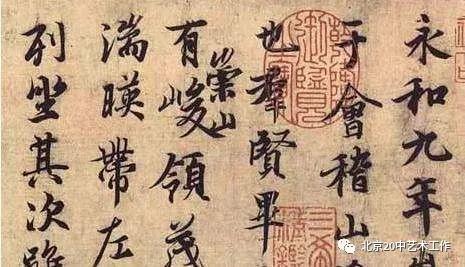 永和九年
于會稽山
也羣賢畢
有崇山峻領茂
湍暎帶左
列坐其次雖
北京20中艺术工作